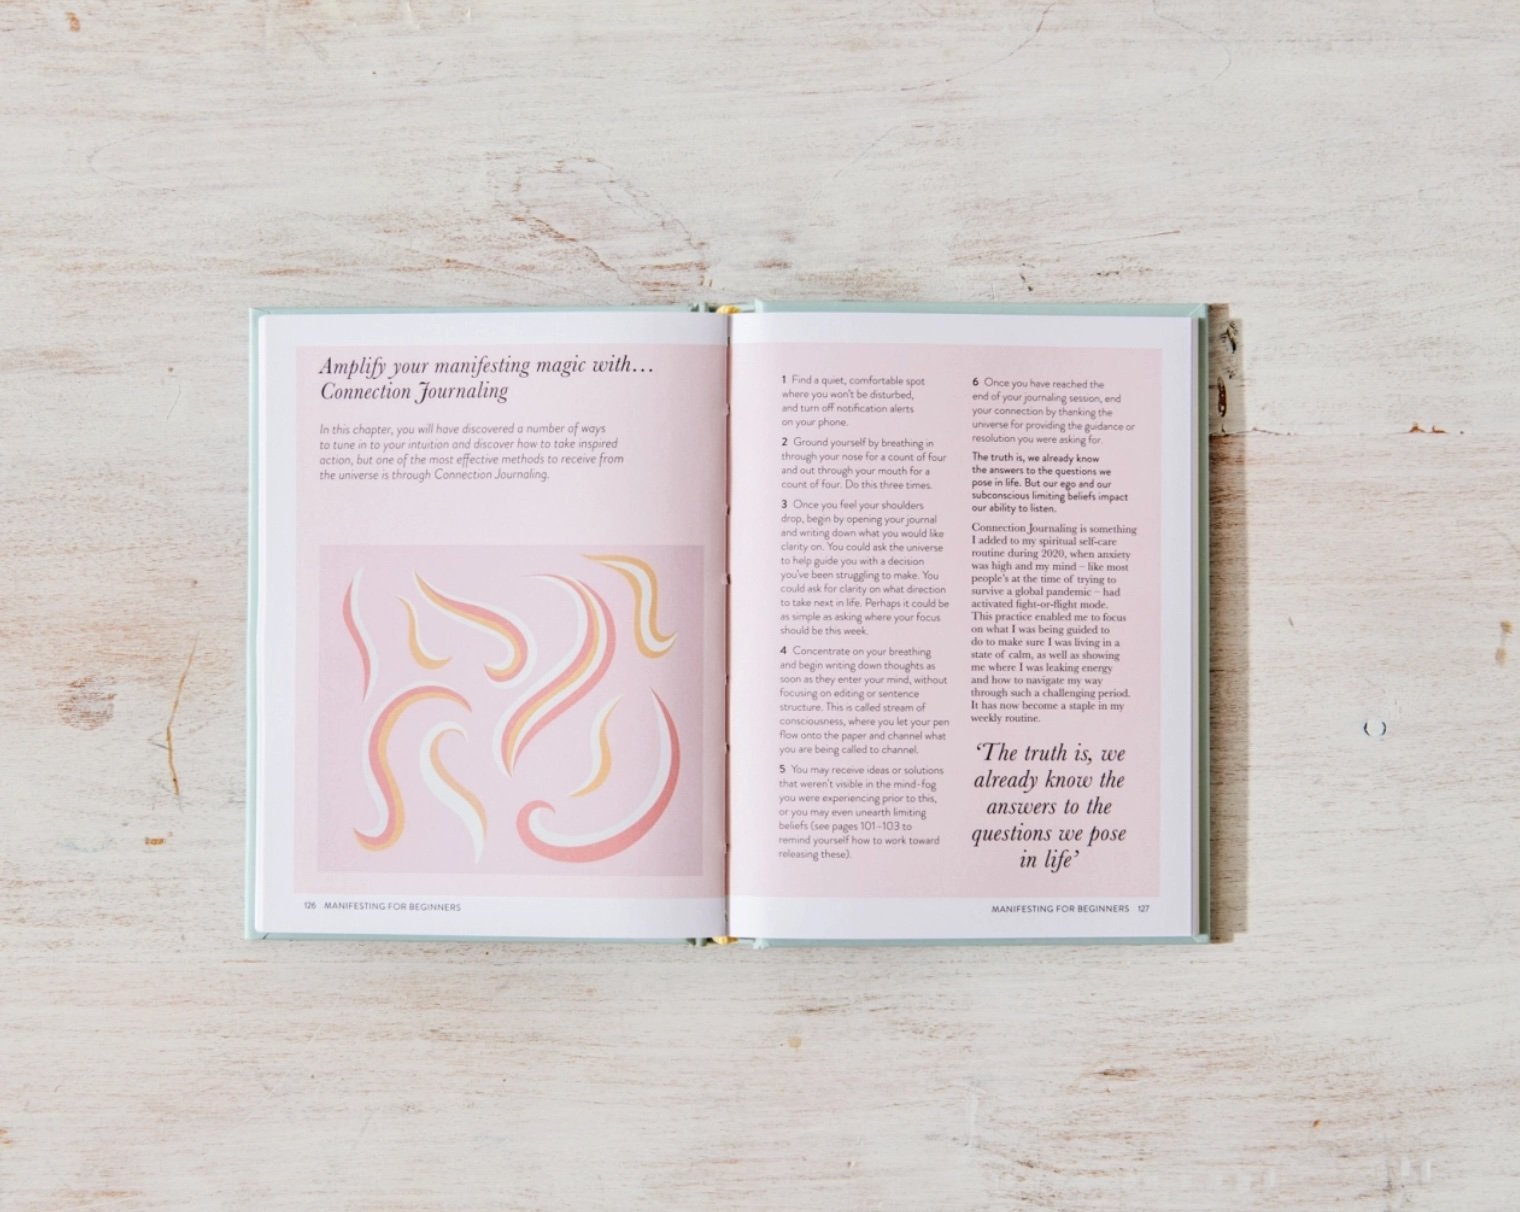 Amplify your manifesting magic with...
Connection Journaling
In this chapter, you will have discovered a number of ways
to tune in to your intuition and discover how to take inspired
action, but one of the most effective methods to receive from
the universe is through Connection Journaling.
126 MANIFESTING FOR BEGINNERS
1 Find a quiet, comfortable spot
where you won't be disturbed,
and turn off notification alerts
on your phone.
2 Ground yourself by breathing in
through your nose for a count of four
and out through your mouth for a
count of four. Do this three times.
3 Once you feel your shoulders
drop, begin by opening your journal
and writing down what you would like
clarity on. You could ask the universe
to help guide you with a decision
you've been struggling to make. You
could ask for clarity on what direction
to take next in life. Perhaps it could be
as simple as asking where your focus
should be this week.
4 Concentrate on your breathing
and begin writing down thoughts as
soon as they enter your mind, without
focusing on editing or sentence
structure. This is called stream of
consciousness, where you let your pen
flow onto the paper and channel what
you are being called to channel.
5 You may receive ideas or solutions
that weren't visible in the mind-fog
you were experiencing prior to this,
or you may even unearth limiting
beliefs (see pages 101–103 to
remind yourself how to work toward
releasing these).
6 Once you have reached the
end of your journaling session, end
your connection by thanking the
universe for providing the guidance or
resolution you were asking for.
The truth is, we already know
the answers to the questions we
pose in life. But our ego and our
subconscious limiting beliefs impact
our ability to listen.
Connection Journaling is something
I added to my spiritual self-care
routine during 2020, when anxiety
was high and my mind – like most
people's at the time of trying to
survive a global pandemic – had
activated fight-or-flight mode.
This practice enabled me to focus
on what I was being guided to
do to make sure I was living in a
state of calm, as well as showing
me where I was leaking energy
and how to navigate my way
through such a challenging period.
It has now become a staple in my
weekly routine.
'The truth is, we
already know the
answers to the
questions we pose
in life'
MANIFESTING FOR BEGINNERS 127